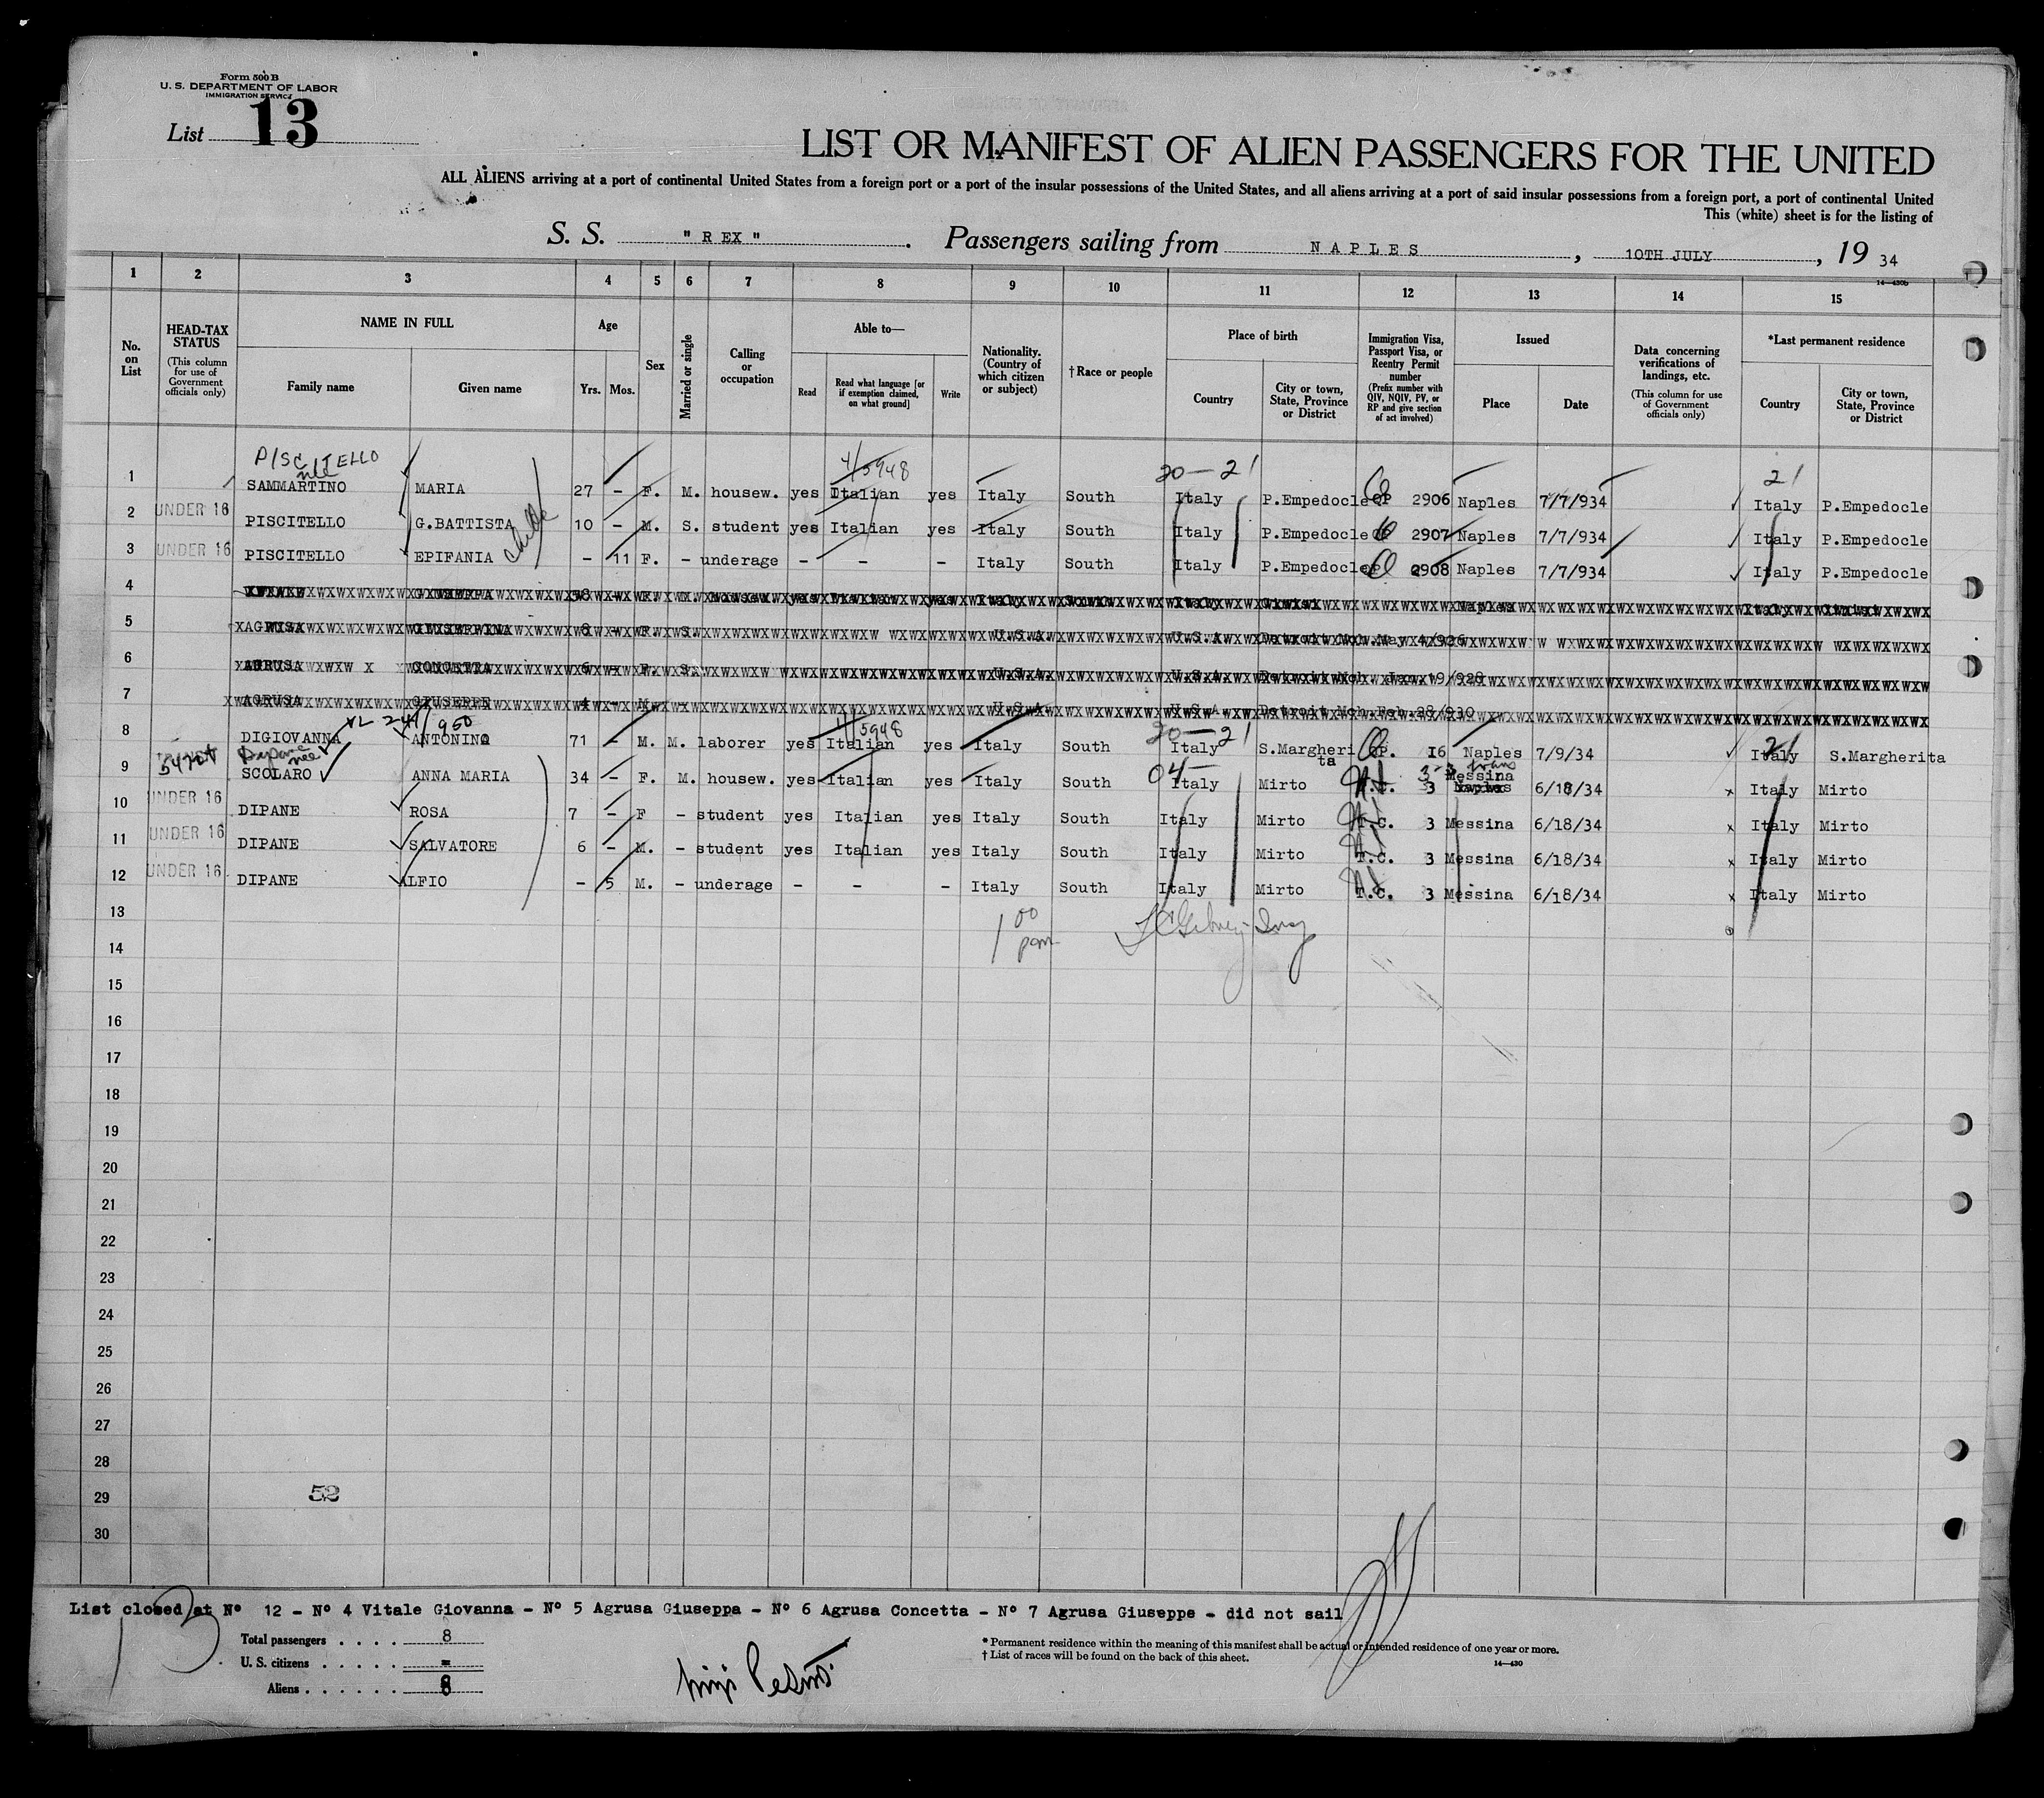 Form 500 B
U. S. DEPARTMENT OF LABOR
IMMIGRATION SERVICE
List 13
LIST OR MANIFEST OF ALIEN PASSENGERS FOR THE UNITED
ALL ALIENS arriving at a port of continental United States from a foreign port or a port of the insular possessions of the United States, and all aliens arriving at a port of said insular possessions from a foreign port, a port of continental United
This (white) sheet is for the listing of
S. S. "REX". Passengers sailing from NAPLES, 10TH JULY, 19 34
14—430b
1 2 3 4 5 6 7 8 9 10 11 12 13 14 15
No. on List
HEAD-TAX STATUS (This column for use of Government officials only)
NAME IN FULL Family name Given name
Age Yrs. Mos.
Sex
Married or single
Calling or occupation
Able to— Read Read what language [or if exemption claimed, on what ground] Write
Nationality. (Country of which citizen or subject)
†Race or people
Place of birth Country City or town, State, Province or District
Immigration Visa, Passport Visa, or Reentry Permit number (Prefix number with QIV, NQIV, PV, or RP and give section of act involved)
Issued Place Date
Data concerning verifications of landings, etc. (This column for use of Government officials only)
*Last permanent residence Country City or town, State, Province or District
PISCITELLO née 4/5948 20-21 21
1 SAMMARTINO MARIA 27 - F. M. housew. yes Italian yes Italy South Italy P.Empedocle 2906 Naples 7/7/934 Italy P.Empedocle
2 UNDER 16 PISCITELLO G.BATTISTA 10 - M. S. student yes Italian yes Italy South Italy P.Empedocle 2907 Naples 7/7/934 Italy P.Empedocle
3 UNDER 16 PISCITELLO EPIFANIA - 11 F. - underage - - - Italy South Italy P.Empedocle 2908 Naples 7/7/934 Italy P.Empedocle
4
5 AGRUSA GIUSEPPINA 8 - F. S. U.S.A. U.S.A. Detroit Mch. May 4/926
6 AGRUSA CONCETTA 6 - F. S. U.S.A. U.S.A. Detroit Mch. Jan.19/928
7 AGRUSA GIUSEPPE 4 - M. - U.S.A. U.S.A. Detroit Mch Feb.28/930
VL 241/950 4/5948 20-21 21
8 DIGIOVANNA ANTONINO 71 - M. M. laborer yes Italian yes Italy South Italy S.Margherita QP. 16 Naples 7/9/34 Italy S.Margherita
Dipane née 04-
9 SCOLARO ANNA MARIA 34 - F. M. housew. yes Italian yes Italy South Italy Mirto 3 Messina 6/18/34 Italy Mirto
10 UNDER 16 DIPANE ROSA 7 - F - student yes Italian yes Italy South Italy Mirto T.C. 3 Messina 6/18/34 Italy Mirto
11 UNDER 16 DIPANE SALVATORE 6 - M. - student yes Italian yes Italy South Italy Mirto T.C. 3 Messina 6/18/34 Italy Mirto
12 UNDER 16 DIPANE ALFIO - 5 M. - underage - - - Italy South Italy Mirto T.C. 3 Messina 6/18/34 Italy Mirto
13 1 00 pm
14
15
16
17
18
19
20
21
22
23
24
25
26
27
28
29 52
30
List closed at Nº 12 - Nº 4 Vitale Giovanna - Nº 5 Agrusa Giuseppa - Nº 6 Agrusa Concetta - Nº 7 Agrusa Giuseppe - did not sail
13
Total passengers . . . . 8
U. S. citizens . . . . . =
Aliens . . . . . . 8
* Permanent residence within the meaning of this manifest shall be actual or intended residence of one year or more.
† List of races will be found on the back of this sheet.
14—430